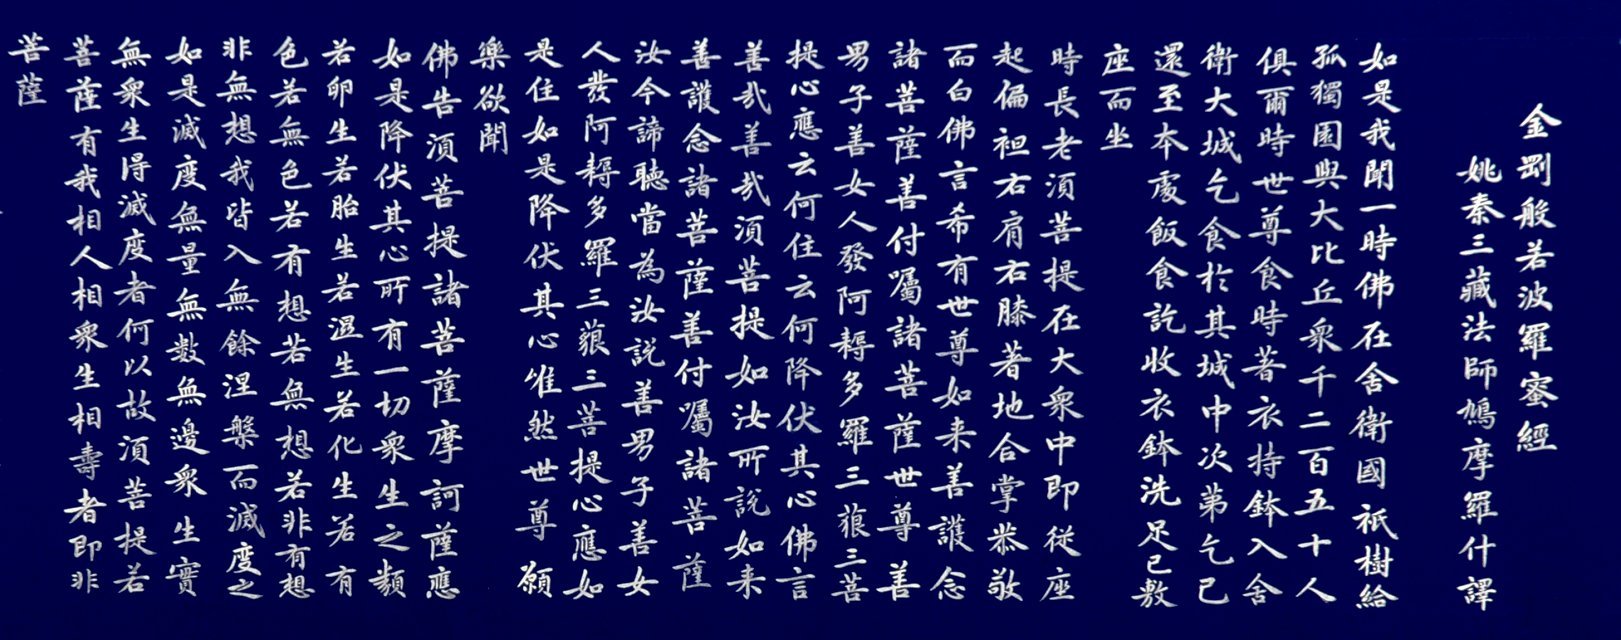 金剛般若波羅蜜經
姚秦三藏法師鳩摩羅什譯
如是我聞一時佛在舍衛國祇樹給
孤獨園與大比丘衆千二百五十人
俱爾時世尊食時著衣持鉢入舍
衛大城乞食於其城中次第乞已
還至本處飯食訖收衣鉢洗足已敷
座而坐
時長老須菩提在大衆中即從座
起偏袒右肩右膝著地合掌恭敬
而白佛言希有世尊如来善護念
諸菩薩善付囑諸菩薩世尊善
男子善女人發阿耨多羅三藐三菩
提心應云何住云何降伏其心佛言
善哉善哉須菩提如汝所說如来
善護念諸菩薩善付囑諸菩薩
汝今諦聽當為汝説善男子善女
人發阿耨多羅三藐三菩提心應如
是住如是降伏其心唯然世尊願
樂欲聞
佛告須菩提諸菩薩摩訶薩應
如是降伏其心所有一切衆生之類
若卵生若胎生若濕生若化生若有
色若無色若有想若無想若非有想
非無想我皆入無餘涅槃而滅度之
如是滅度無量無数無邊衆生實
無衆生得滅度者何以故須菩提若
菩薩有我相人相衆生相壽者即非
菩薩